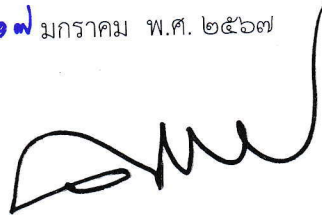 ๑๗ มกราคม พ.ศ. ๒๕๖๗